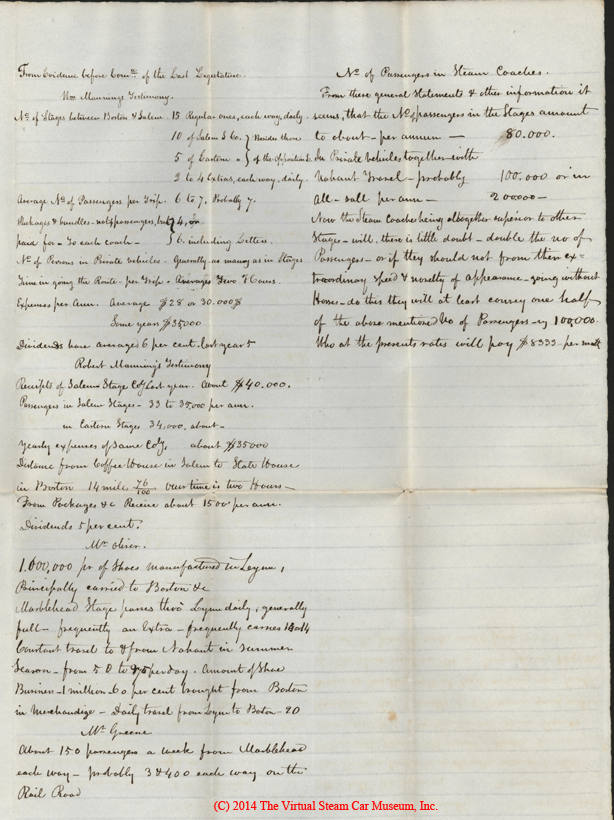 From Evidence before Comtt of the Last Legislature.
Wm Mannings Testimony.
No. of Stages between Boston & Salem 15 Regular ones, each way, daily.
10 of Salem S Co. } Besides those
5 of Eastern } of the opposition
2 to 4 Extras, each way, daily.
Average No. of Passengers per Trip. 6 to 7. Probably 7.
Packages & bundles - not passengers, but } 4, or
paid for - To each coach - } 6. including Letters.
No. of Persons in Private vehicles. Generally as many as in Stages
Time in going the Route - per Trip. Averages Two Hours.
Expenses per Ann. Average $28 or 30.000$
Some years $35000
Dividends have averages 6 per cent. last year 5
Robert Manning's Testimony
Receipts of Salem Stage Coy Last year. About $40.000.
Passengers in Salem Stages - 33 to 35,000 per ann.
in Eastern Stages 34,000. about -
Yearly expenses of Same Coy, about $35000
Distance from Coffee House in Salem to State House
in Boston 14 mile 76/100 Our time is two Hours -
From Packages &c Receive about 1500 per ann.
Dividends 5 per cent.
Mr Oliver.
1.600,000 pr of Shoes manufactured in Lynn,
Principally carried to Boston &c
Marblehead Stage passes thro' Lynn daily, generally
full - frequently an Extra - frequently carries 13 or 14
Constant travel to & from Nahant in summer
Season - from 50 to 75 per day. Amount of Shoe
Business - 1 million - 60 per cent brought from Boston
in Merchandize - Daily travel from Lynn to Boston - 20
Mr Greene
About 150 passengers a week from Marblehead
each way - probably 3 & 400 each way on the
Rail Road
No. of Passengers in Steam Coaches.
From these general statements & other information it
seems, that the No of passengers in the Stages amount
to about - per annum - 80.000.
In Private vehicles together with
Nahant Travel - probably 100.000 or in
All - call per ann - 200000 -
Now the Steam Coaches being altogether superior to other
Stages - will, there is little doubt - double the no of
Passengers - or if they should not from their ex-
traordinary speed & novelty of appearance - going without
Horses - do this they will at least convey one half
of the above mentioned No of Passengers - 100,000.
Who at the presents rates will pay $8333 - per month
(C) 2014 The Virtual Steam Car Museum, Inc.